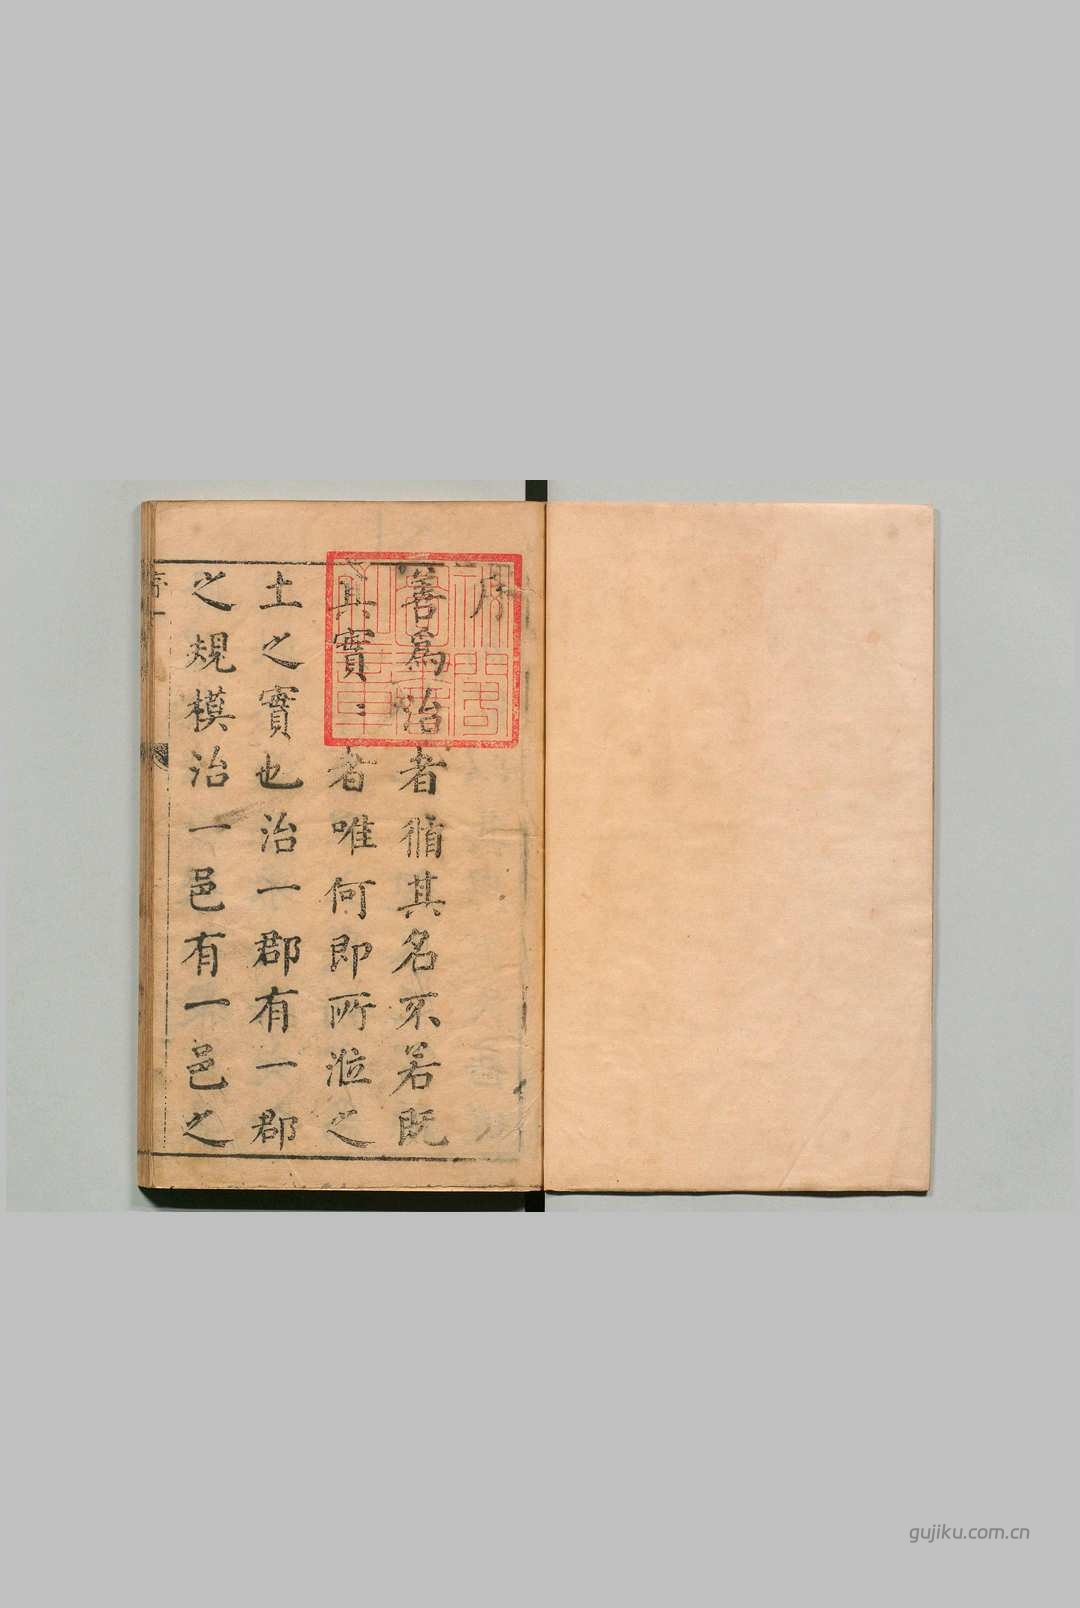 序
善爲治者循其名不若既
其實〻者唯何卽所涖之
土之實也治一郡有一郡
之規模治一邑有一邑之
序一
祕閣圖書之章
gujiku.com.cn